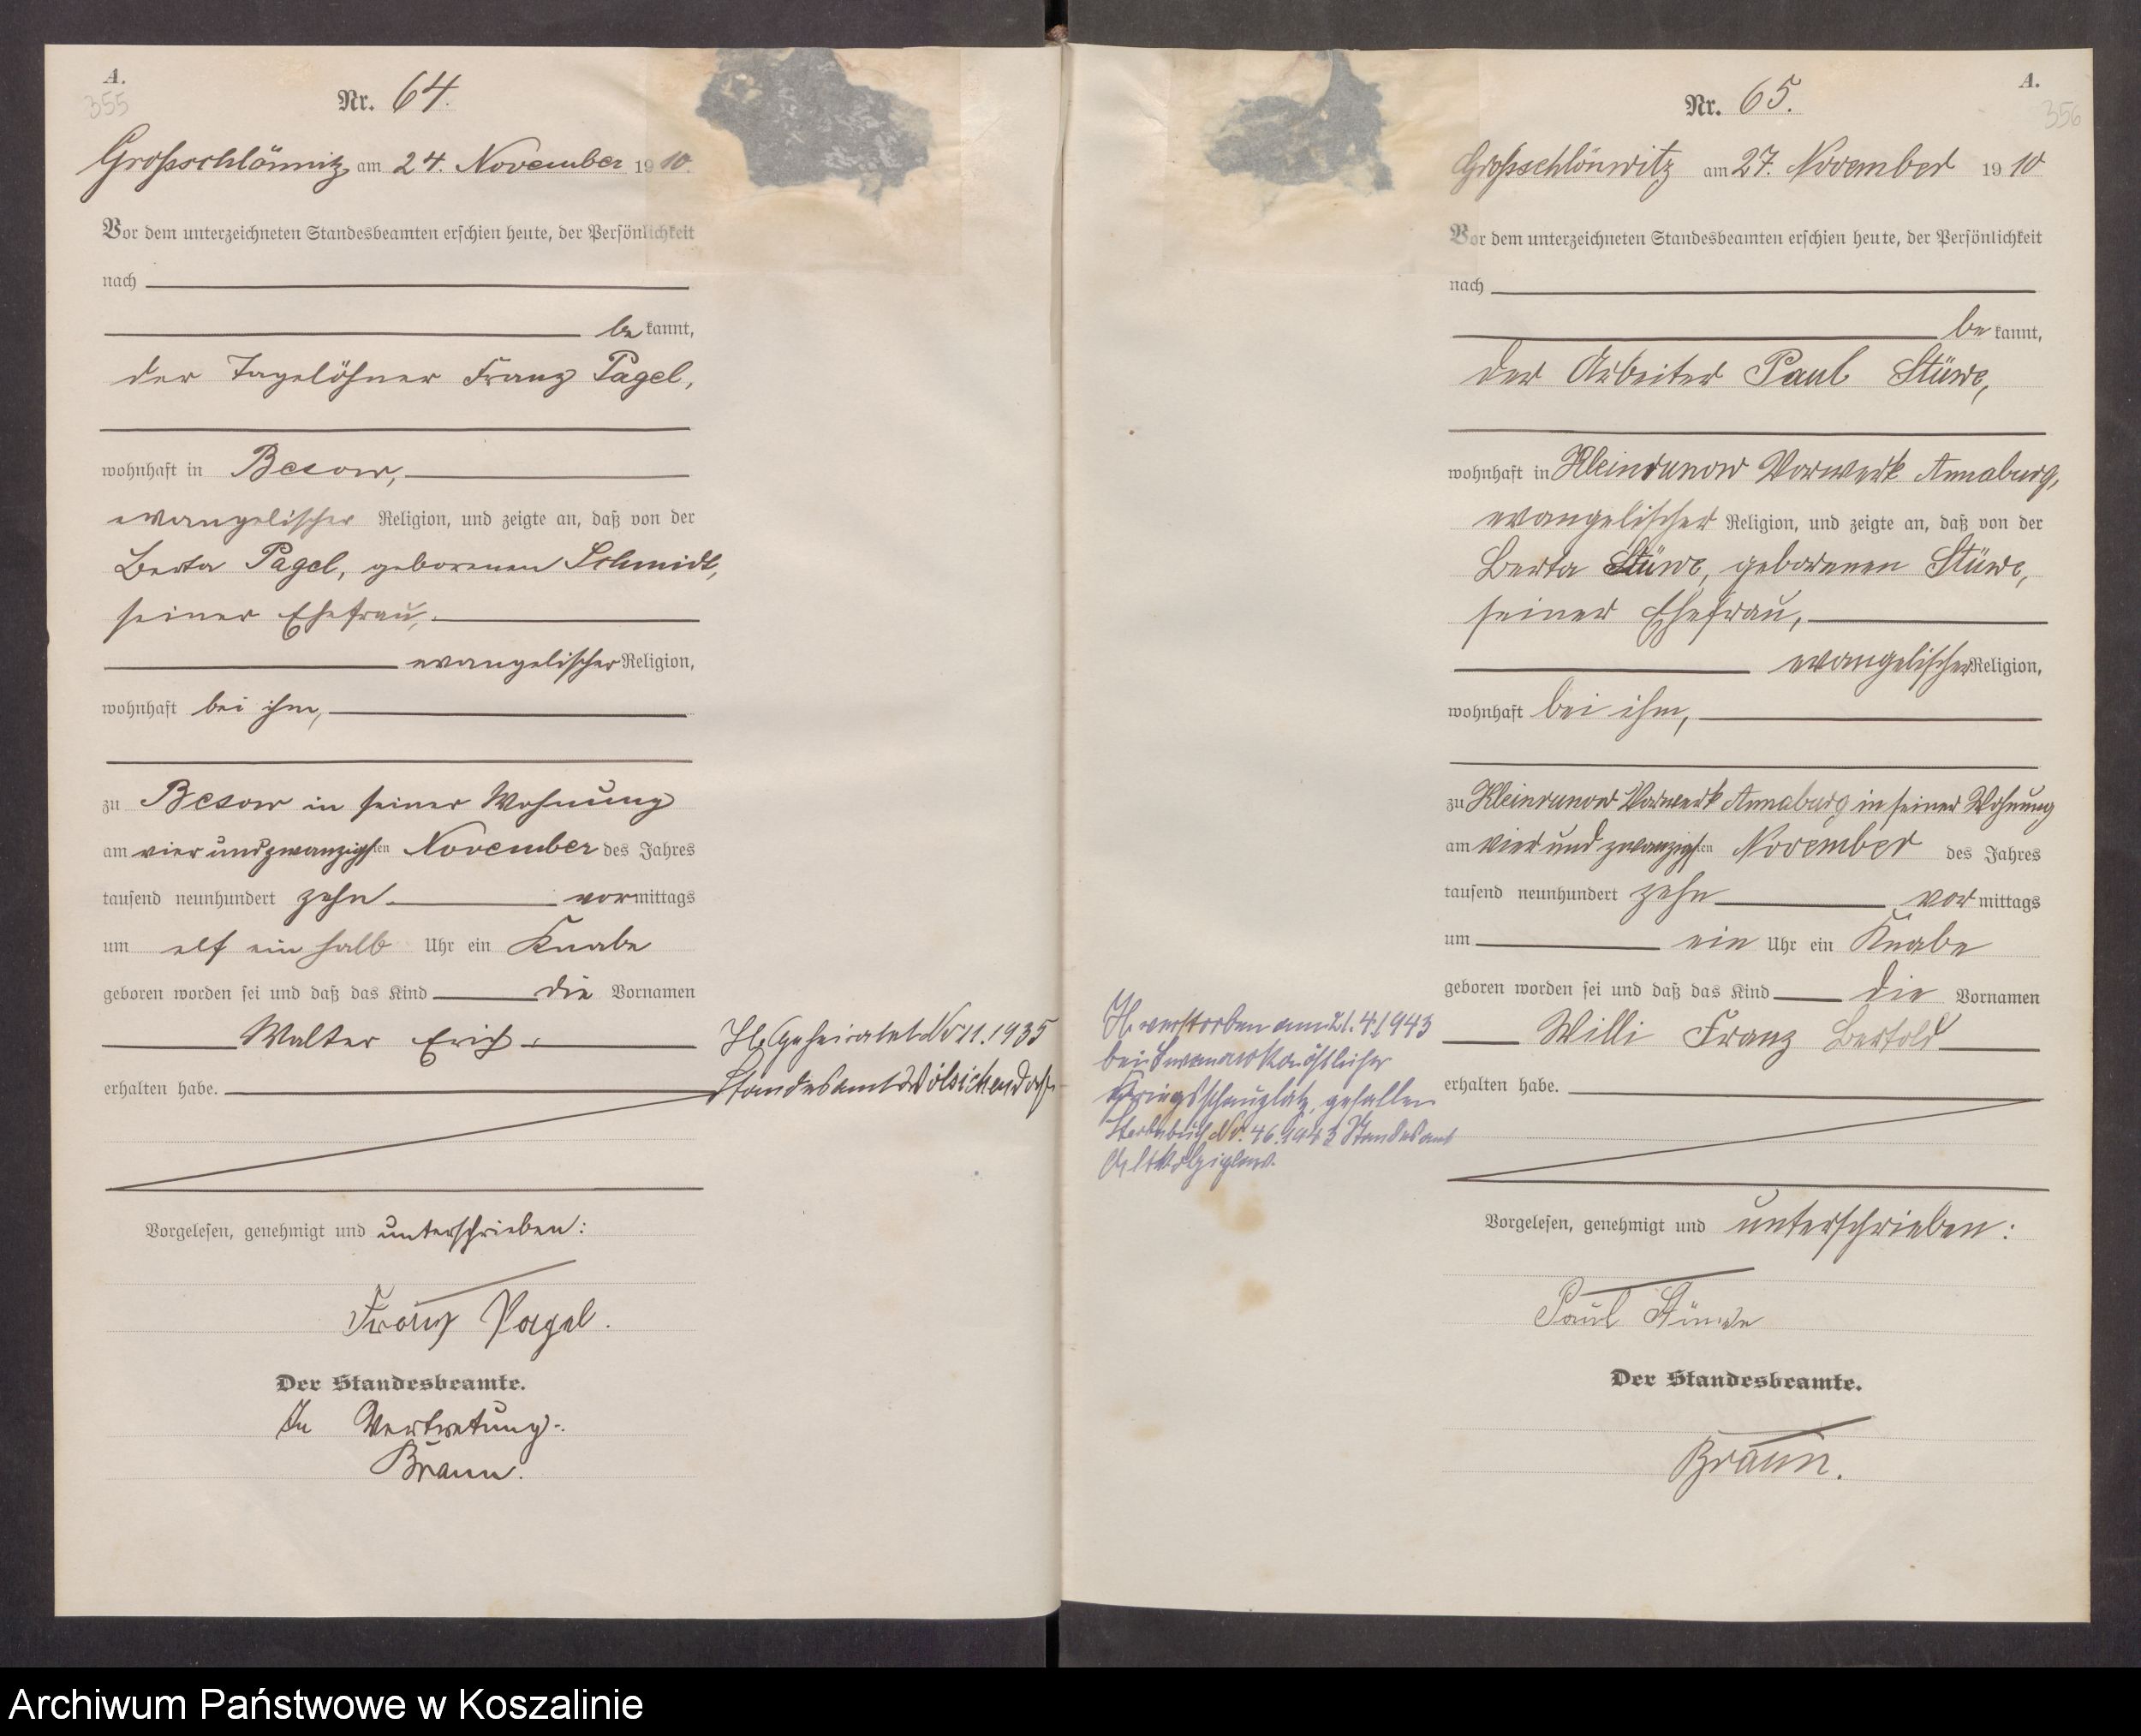 A.
355
Nr. 64.
Großschlönwitz, am 24. November 1910.
Vor dem unterzeichneten Standesbeamten erschien heute, der Persönlichkeit
nach
be kannt,
der Tagelöhner Franz Pagel,
wohnhaft in Besow,
evangelischer Religion, und zeigte an, daß von der
Berta Pagel, geborenen Schmidt,
seiner Ehefrau,
evangelischer Religion,
wohnhaft bei ihm,
zu Besow in seiner Wohnung
am vier und zwanzigsten November des Jahres
tausend neunhundert zehn vormittags
um elf ein halb Uhr ein Knabe
geboren worden sei und daß das Kind die Vornamen
Walter Erich
erhalten habe.
Vorgelesen, genehmigt und unterschrieben:
Franz Pagel.
Der Standesbeamte.
In Vertretung.
Braun.
H. Geheiratet Nr 11.1935
Standesamt
A.
356
Nr. 65.
Großschlönwitz am 27. November 1910
Vor dem unterzeichneten Standesbeamten erschien heute, der Persönlichkeit
nach
be kannt,
der Arbeiter Paul Stüwe,
wohnhaft in Kleinrunow Vorwerk Annaburg,
evangelischer Religion, und zeigte an, daß von der
Berta Stüwe, geborenen Stüwe,
seiner Ehefrau,
evangelischer Religion,
wohnhaft bei ihm,
zu Kleinrunow Vorwerk Annaburg in seiner Wohnung
am vier und zwanzigsten November des Jahres
tausend neunhundert zehn vor mittags
um ein Uhr ein Knabe
geboren worden sei und daß das Kind die Vornamen
Willi Franz Bertold
erhalten habe.
Vorgelesen, genehmigt und unterschrieben:
Paul Stüwe
Der Standesbeamte.
Braun.
H. verstorben am 21.4.1943
bei östlicher
Kriegsschauplatz, gefallen
Sterbebuch Nr. 46.1943 Standesamt
Archiwum Państwowe w Koszalinie